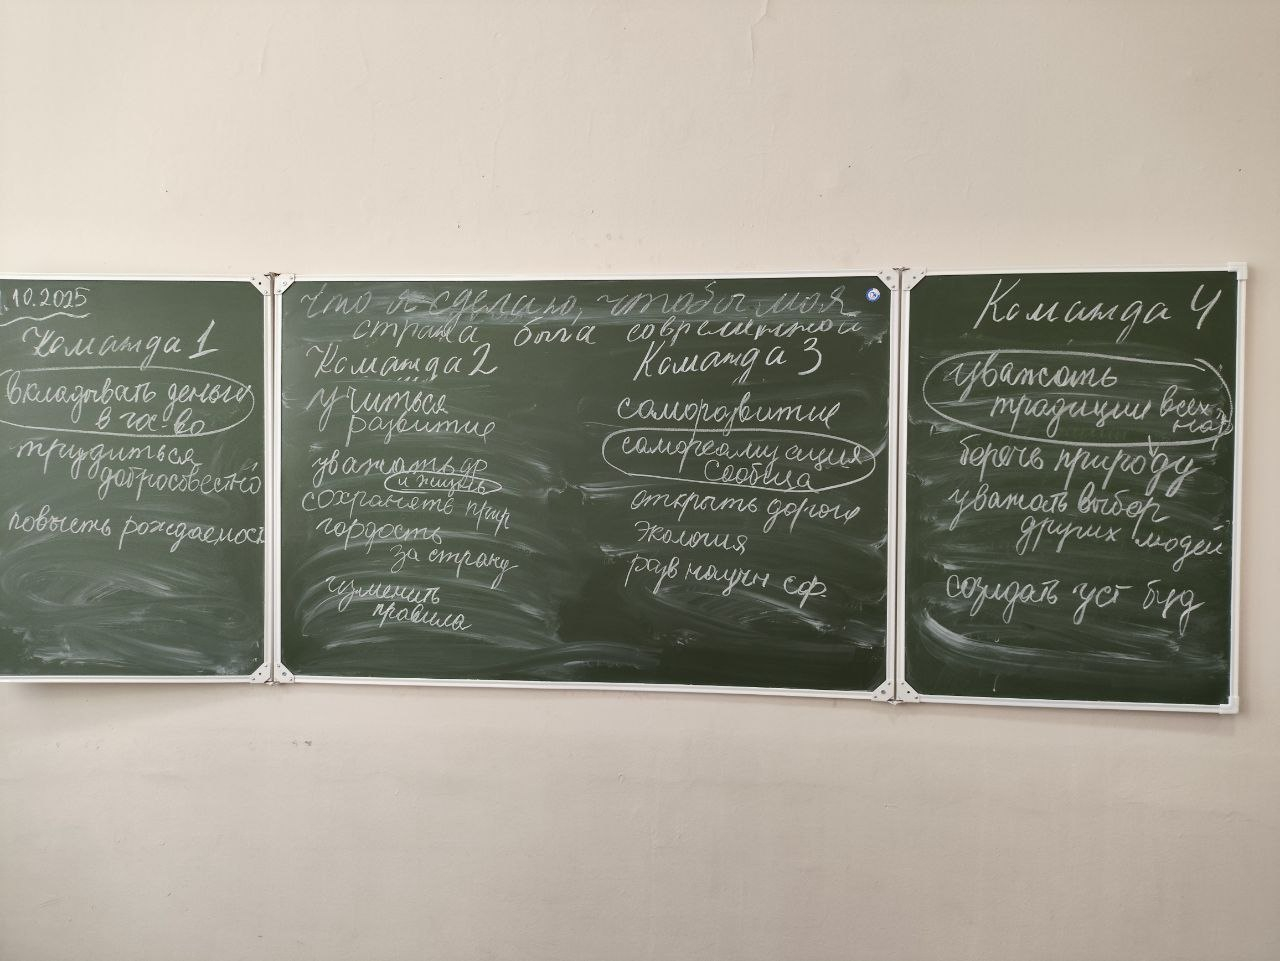 .10.2025
Команда 1
вкладывать деньги
в гос-во
трудиться
добросовестно
повысть рождаемость
Что я сделаю, чтобы моя
страна была современной
Команда 2
учиться
развитие
уважать др
и жизнь
сохранять прир
гордость
за страну
изменить
правила
Команда 3
саморазвитие
самореализация
сообща
открыть дороги
экология
разв научн сф
Команда 4
уважать
традиции всех
нар
беречь природу
уважать выбор
других людей
созидать уст буд